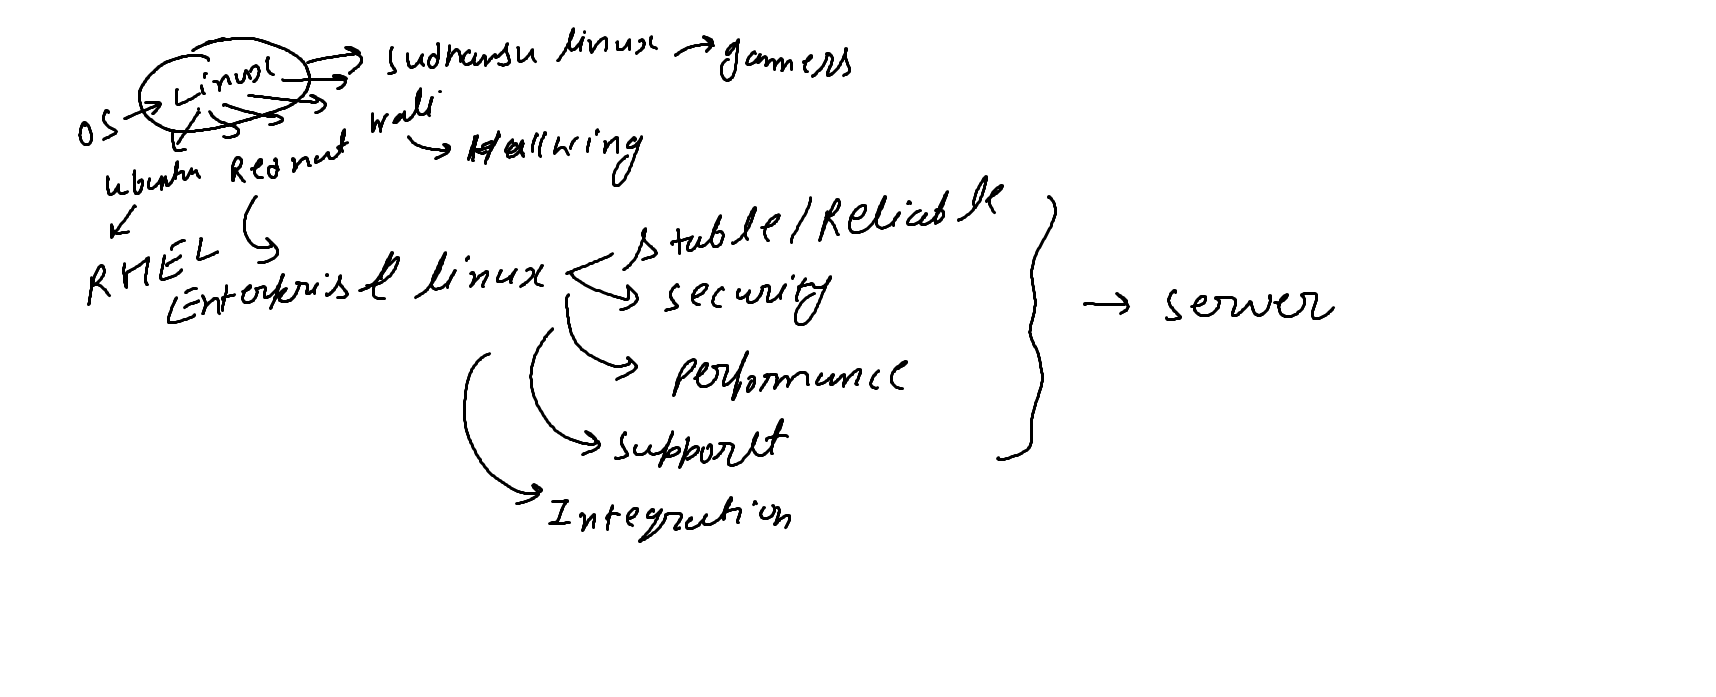 OS → Linux → Sudhansu linux → gamers
Ubuntu Redhat wali → Hallwing
RHEL
Enterprise linux
Stable/Reliable
security
performance
support
Integration
→ server